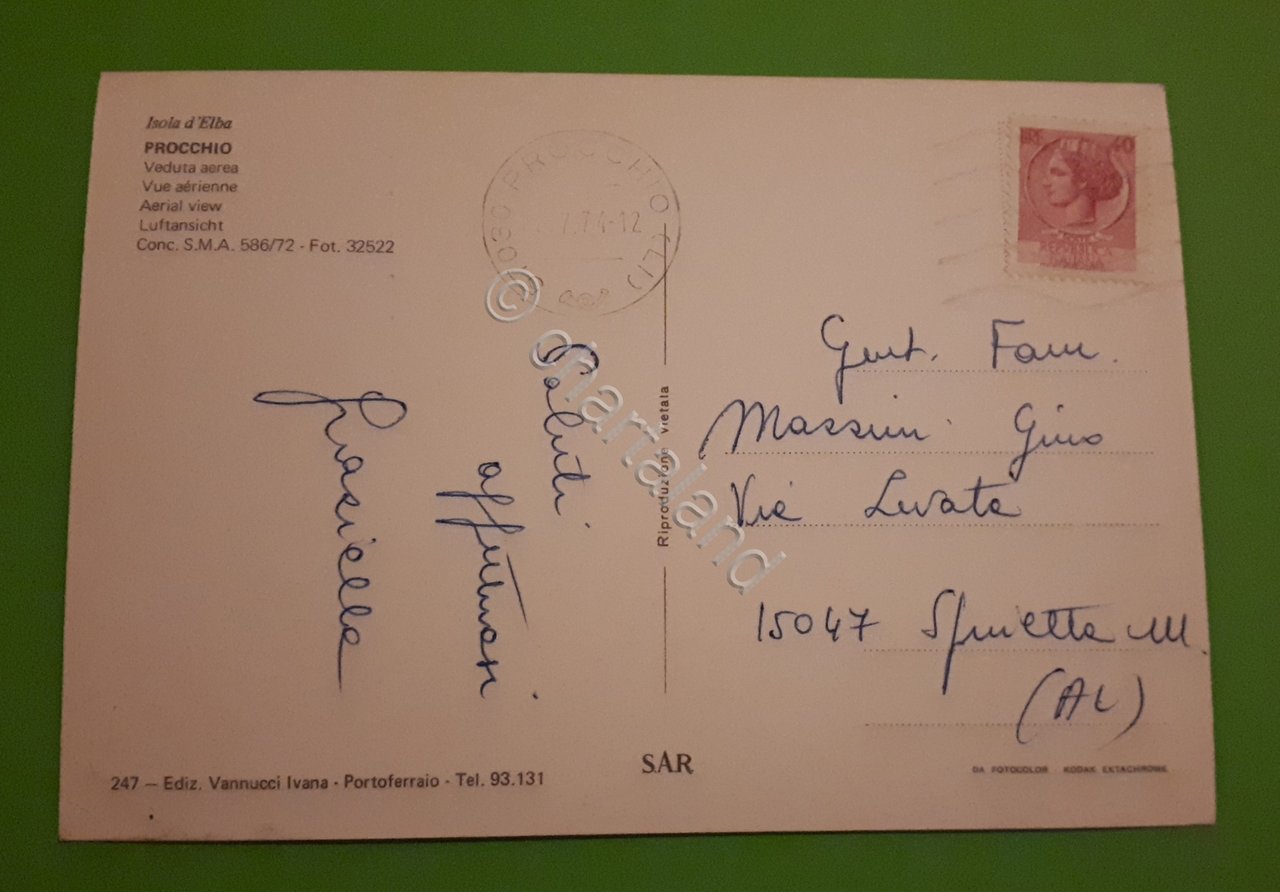 Isola d'Elba
PROCCHIO
Veduta aerea
Vue aérienne
Aerial view
Luftansicht
Conc. S.M.A. 586/72 - Fot. 32522
PROCCHIO (LI)
7.74-12
40
Gent. Fam.
Massini Gino
Via Levata
15047 Spinetta M.
(AL)
Saluti
affettuosi
Grasiella
Riproduzione vietata
© chartaland
247 — Ediz. Vannucci Ivana - Portoferraio - Tel. 93.131
SAR
DA FOTOCOLOR KODAK EKTACHROME